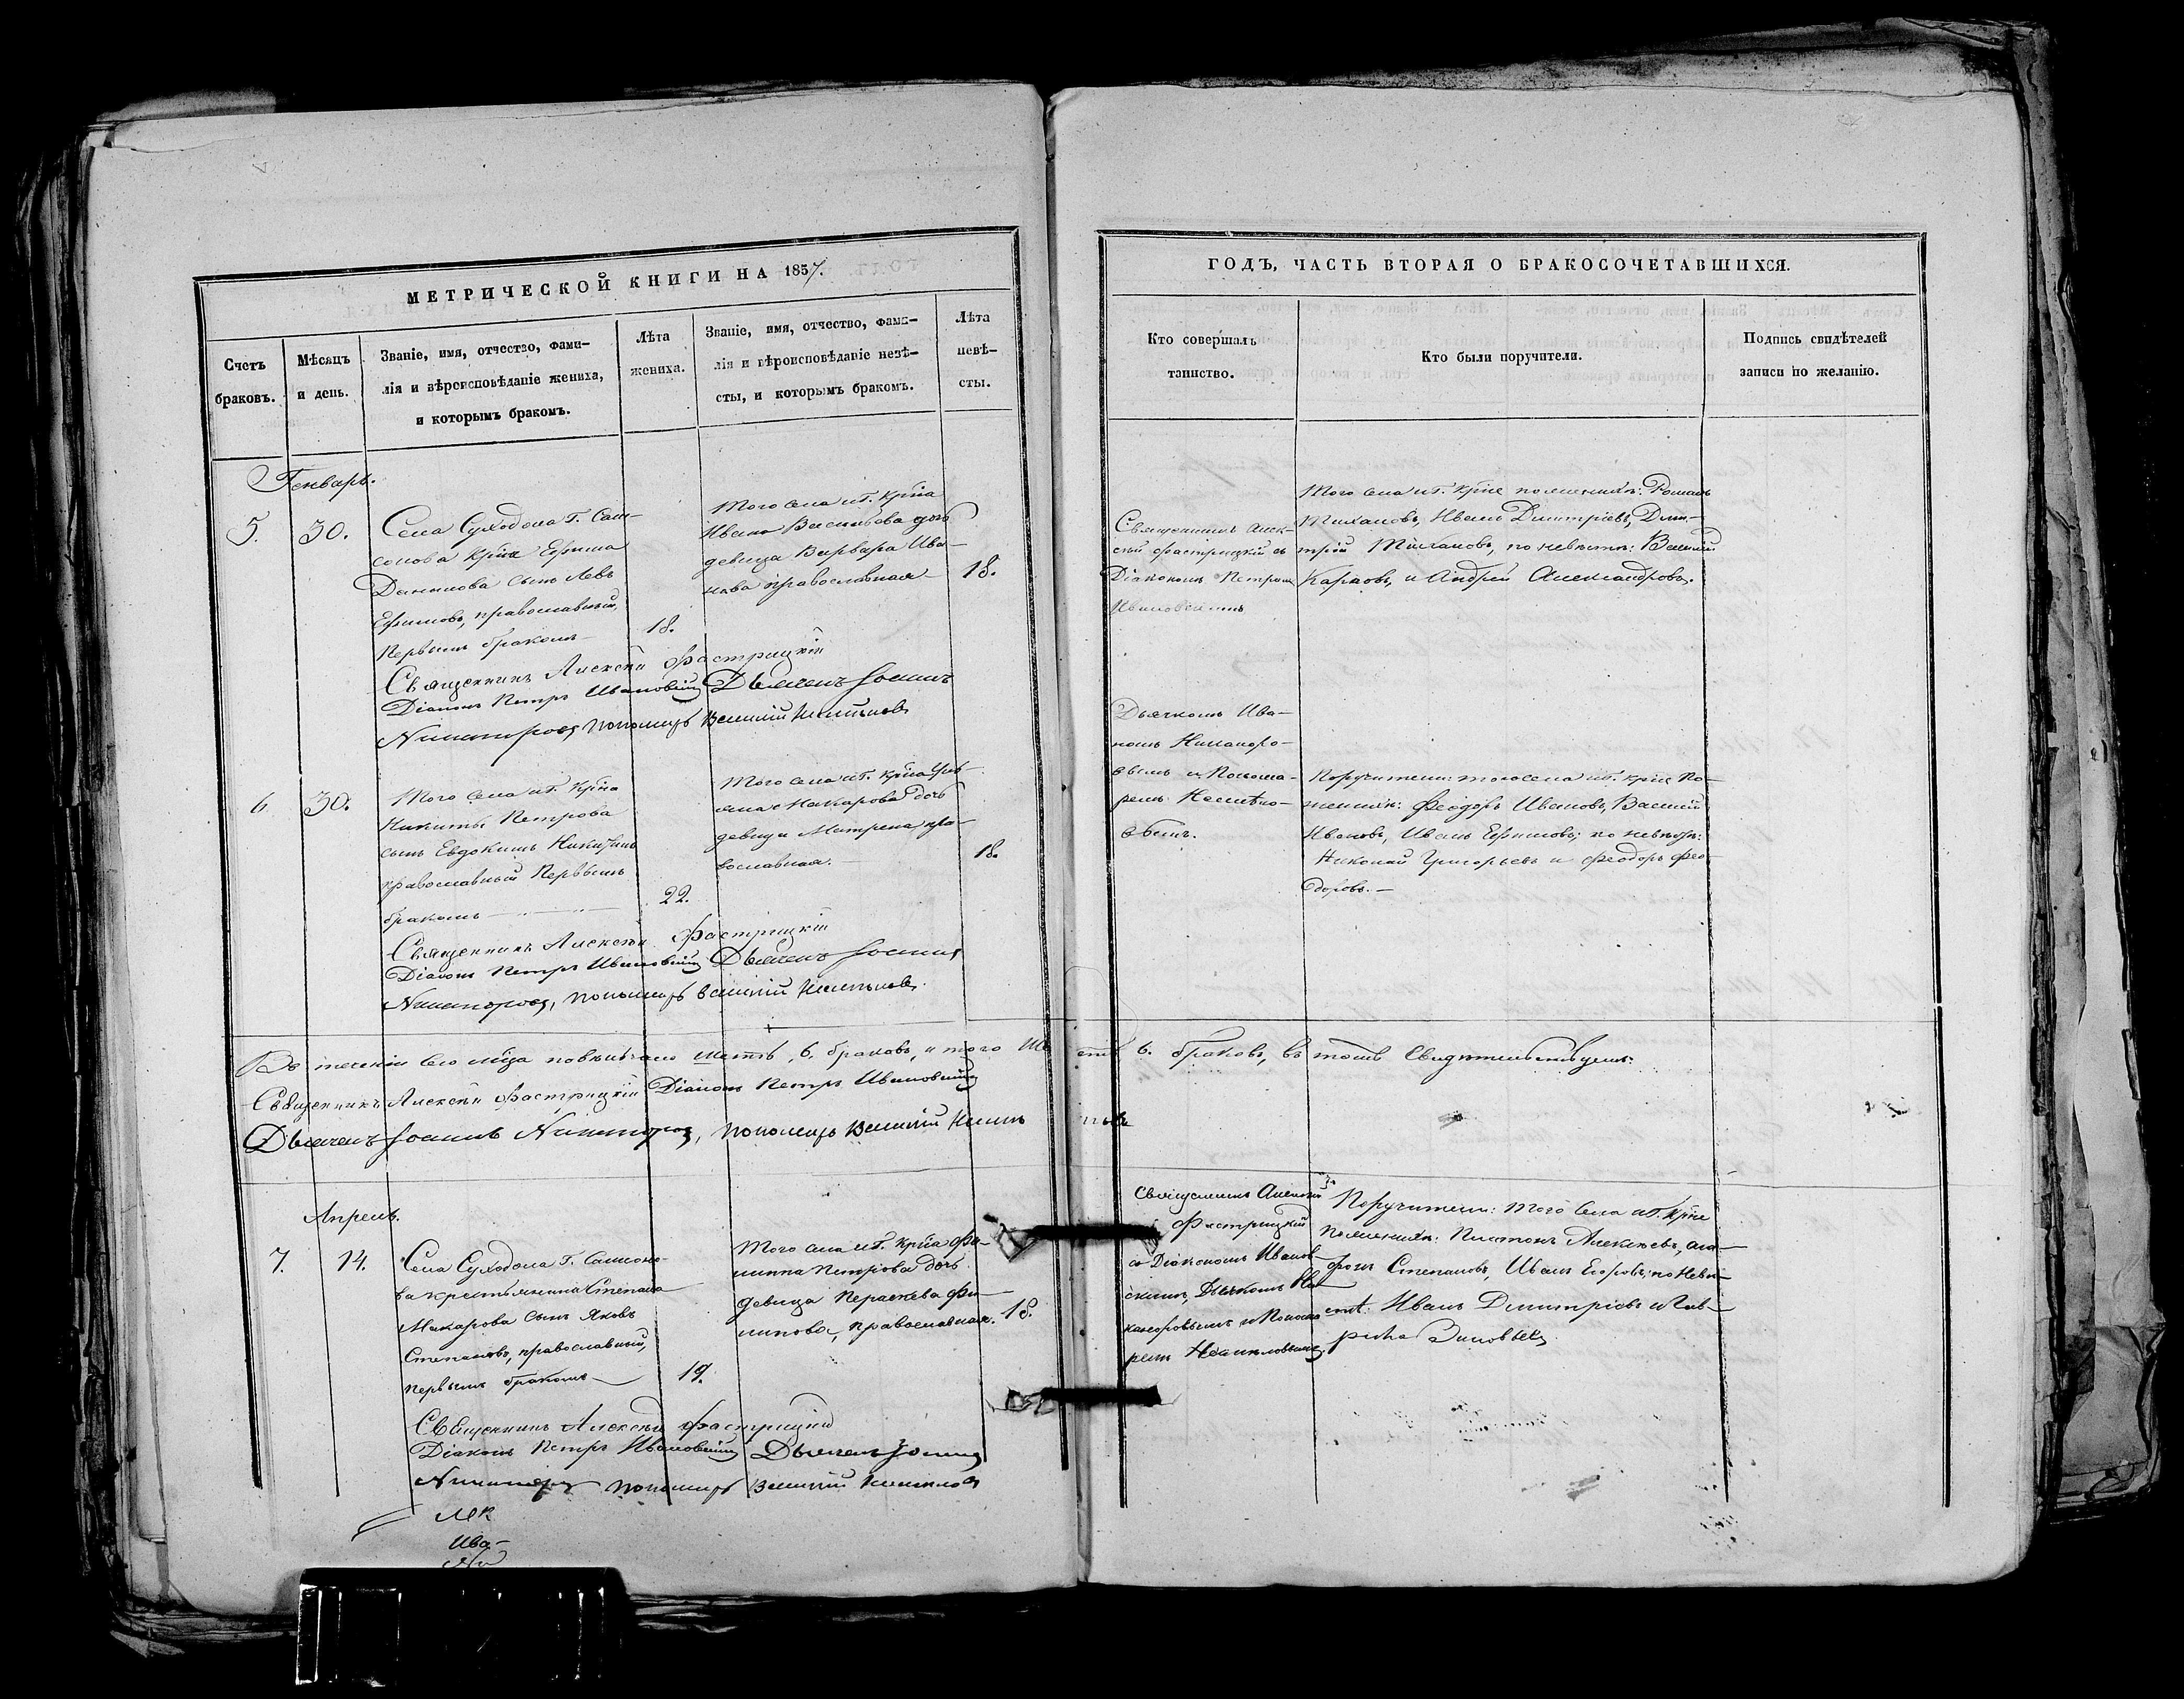 МЕТРИЧЕСКОЙ КНИГИ НА 1857.
Счетъ
браковъ.
Мѣсяцъ
и день.
Званіе, имя, отчество, фами-
лія и вѣроисповѣданіе жениха,
и которымъ бракомъ.
Лѣта
жениха.
Званіе, имя, отчество, фами-
лія и вѣроисповѣданіе невѣ-
сты, и которымъ бракомъ.
Лѣта
невѣ-
сты.
Генварь.
5.
30.
Села Суходола Г. Сам-
сонова крна Ефима
Данилова сынъ Левъ
Ефимовъ, православный,
Первымъ бракомъ
18.
Того села и Г. крна
Ивана Васильева дочь
девица Варвара Ива-
нова православная
18.
Священникъ Алексѣй Фастрицкій
Діаконъ Петръ Ивановскій Дьячекъ Іоаннъ
Никаноровъ, пономарь Василій
6.
30.
Того села и Г. крна
Никиты Петрова
сынъ Евдокимъ Никитинъ
православный Первымъ
бракомъ
22.
Того села и Г. крна Уль-
яна Макарова дочь
девица Матрена пра-
вославная.
18.
Священникъ Алексѣй Фастрицкій
Діаконъ Петръ Ивановскій Дьячекъ Іоаннъ
Никаноровъ, пономарь Василій
Въ теченіи сего мѣца повѣнчано шесть, 6, браковъ, итого шесть 6. браковъ, въ томъ свидѣтельствуемъ:
Священникъ Алексѣй Фастрицкій Діаконъ Петръ Ивановскій
Дьячекъ Іоаннъ Никаноровъ, пономарь Василій
Апрель.
7.
14.
Села Суходола Г. Самсоно-
ва крестьянина Степана
Макарова сынъ Яковъ
Степановъ, православный,
первымъ бракомъ
19.
Того села и Г. крна Фи-
липпа Петрова дочь
девица Пераскева Фи-
липова, православная.
18.
Священникъ Алексѣй Фастрицкій
Діаконъ Петръ Ивановскій Дьячекъ Іоаннъ
Никаноровъ пономарь Василій
Ива-
ГОДЪ, ЧАСТЬ ВТОРАЯ О БРАКОСОЧЕТАВШИХСЯ.
Кто совершалъ
таинство.
Кто были поручители.
Подпись свидѣтелей
записи по желанію.
Священникъ Алек-
сѣй Фастрицкій съ
Діакономъ Петромъ
Ивановскимъ
Дьячкомъ Ива-
номъ Никаноро-
вымъ и Понома-
ремъ
Того села и Г. крне по женихѣ: Романъ
Тихановъ, Иванъ Димитріевъ, Дми-
трій Тихановъ, по невѣстѣ: Василій
Карповъ, и Андрей Александровъ.
Поручители: того села и Г. крне по
женихѣ: Феодоръ Ивановъ, Василий
Ивановъ, Иванъ Ефимовъ; по невѣстѣ:
Николай Григорьевъ и Феодоръ Фео-
доровъ.
Священникъ Алексѣй
Фастрицкій
съ Діакономъ Иванов-
скимъ, Дьячкомъ Ни-
каноровымъ и Понома-
ремъ
Поручители: того села и Г. крне
по женихѣ: Платонъ Алексѣевъ, Ага-
фонъ Степановъ, Иванъ Егоровъ; по невѣ-
стѣ: Иванъ Димитріевъ и Гав-
рила Зиновьевъ